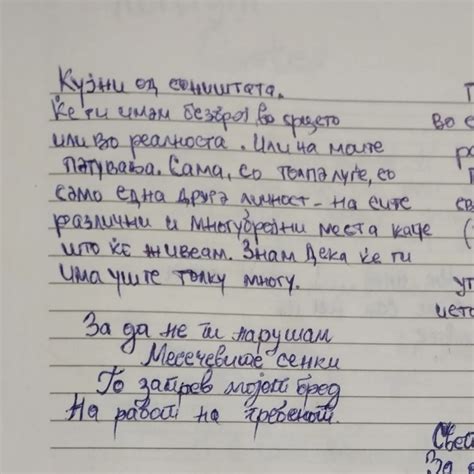 Кујни од соништата.
Ќе ги имам безброј во срцето
или во реалноста. Или на моите
патувања. Сама, со толпа луѓе, со
само една друга личност - на сите
различни и многубројни места каде
што ќе живеам. Знам дека ќе ги
има уште толку многу.
За да не ти нарушам
Месечевите сенки
Го запрев мојот бред
На работ на гребенот.